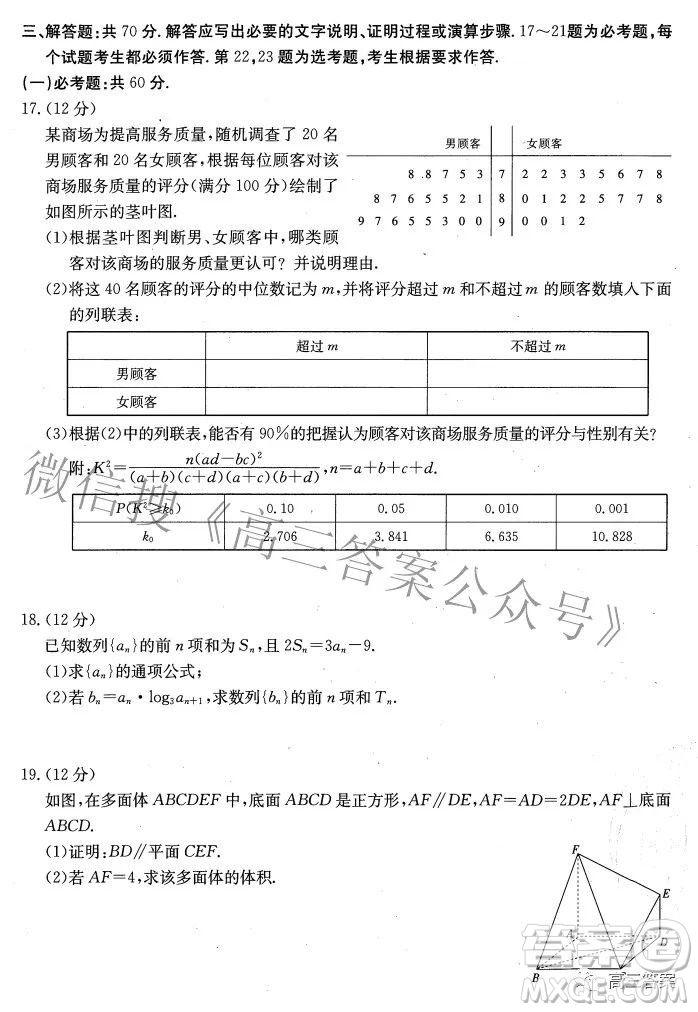 三、解答题:共 70 分.解答应写出必要的文字说明、证明过程或演算步骤.17～21题为必考题,每
个试题考生都必须作答.第 22,23 题为选考题,考生根据要求作答.
(一)必考题:共 60 分.
17.(12 分)
某商场为提高服务质量,随机调查了 20 名
男顾客和 20 名女顾客,根据每位顾客对该
商场服务质量的评分(满分 100 分)绘制了
如图所示的茎叶图.
男顾客 女顾客
8 8 7 5 3 7 2 2 3 3 5 6 7 8
8 7 6 5 5 2 1 8 0 1 2 2 5 7 7 8
9 7 6 5 5 3 0 0 9 0 0 1 2
(1)根据茎叶图判断男、女顾客中,哪类顾
客对该商场的服务质量更认可?并说明理由.
(2)将这 40 名顾客的评分的中位数记为 m,并将评分超过 m 和不超过 m 的顾客数填入下面
的列联表:
超过 m 不超过 m
男顾客
女顾客
(3)根据(2)中的列联表,能否有 90%的把握认为顾客对该商场服务质量的评分与性别有关?
附:K²=n(ad−bc)²/(a+b)(c+d)(a+c)(b+d),n=a+b+c+d.
P(K²≥k₀) 0.10 0.05 0.010 0.001
k₀ 2.706 3.841 6.635 10.828
18.(12 分)
已知数列{aₙ}的前 n 项和为 Sₙ,且 2Sₙ=3aₙ−9.
(1)求{aₙ}的通项公式;
(2)若 bₙ=aₙ·log₃aₙ₊₁,求数列{bₙ}的前 n 项和 Tₙ.
19.(12 分)
如图,在多面体 ABCDEF 中,底面 ABCD 是正方形,AF∥DE,AF=AD=2DE,AF⊥底面
ABCD.
(1)证明:BD∥平面 CEF.
(2)若 AF=4,求该多面体的体积.
F
E
A
D
B
微信搜《高三答案公众号》
答案圈
高三答案